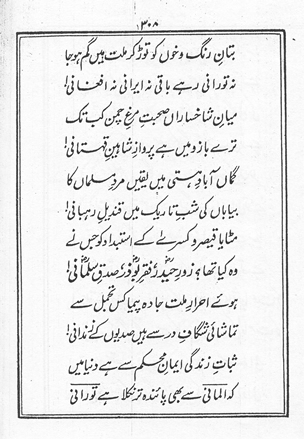 ۳۰۸
بتانِ رنگ و خوں کو توڑ کر ملت میں گم ہو جا
نہ تورانی رہے باقی نہ ایرانی نہ افغانی!
میانِ شاخساراں صحبتِ مرغِ چمن کب تک
ترے بازو میں ہے پروازِ شاہینِ قہستانی!
گماں آبادِ ہستی میں یقیں مردِ مسلماں کا
بیاباں کی شبِ تاریک میں قندیلِ رہبانی!
مٹایا قیصر و کسریٰ کے استبداد کو جس نے
وہ کیا تھا؟ زورِ حیدرؓ، فقرِ بوذرؓ، صدقِ سلمانیؓ!
ہوئے احرارِ ملت جادہ پیما کس تجمل سے
تماشائی شگافِ در سے ہیں صدیوں کے زندانی!
ثباتِ زندگی ایمانِ محکم سے ہے دنیا میں
کہ المانی سے بھی پائندہ تر نکلا ہے تورانی